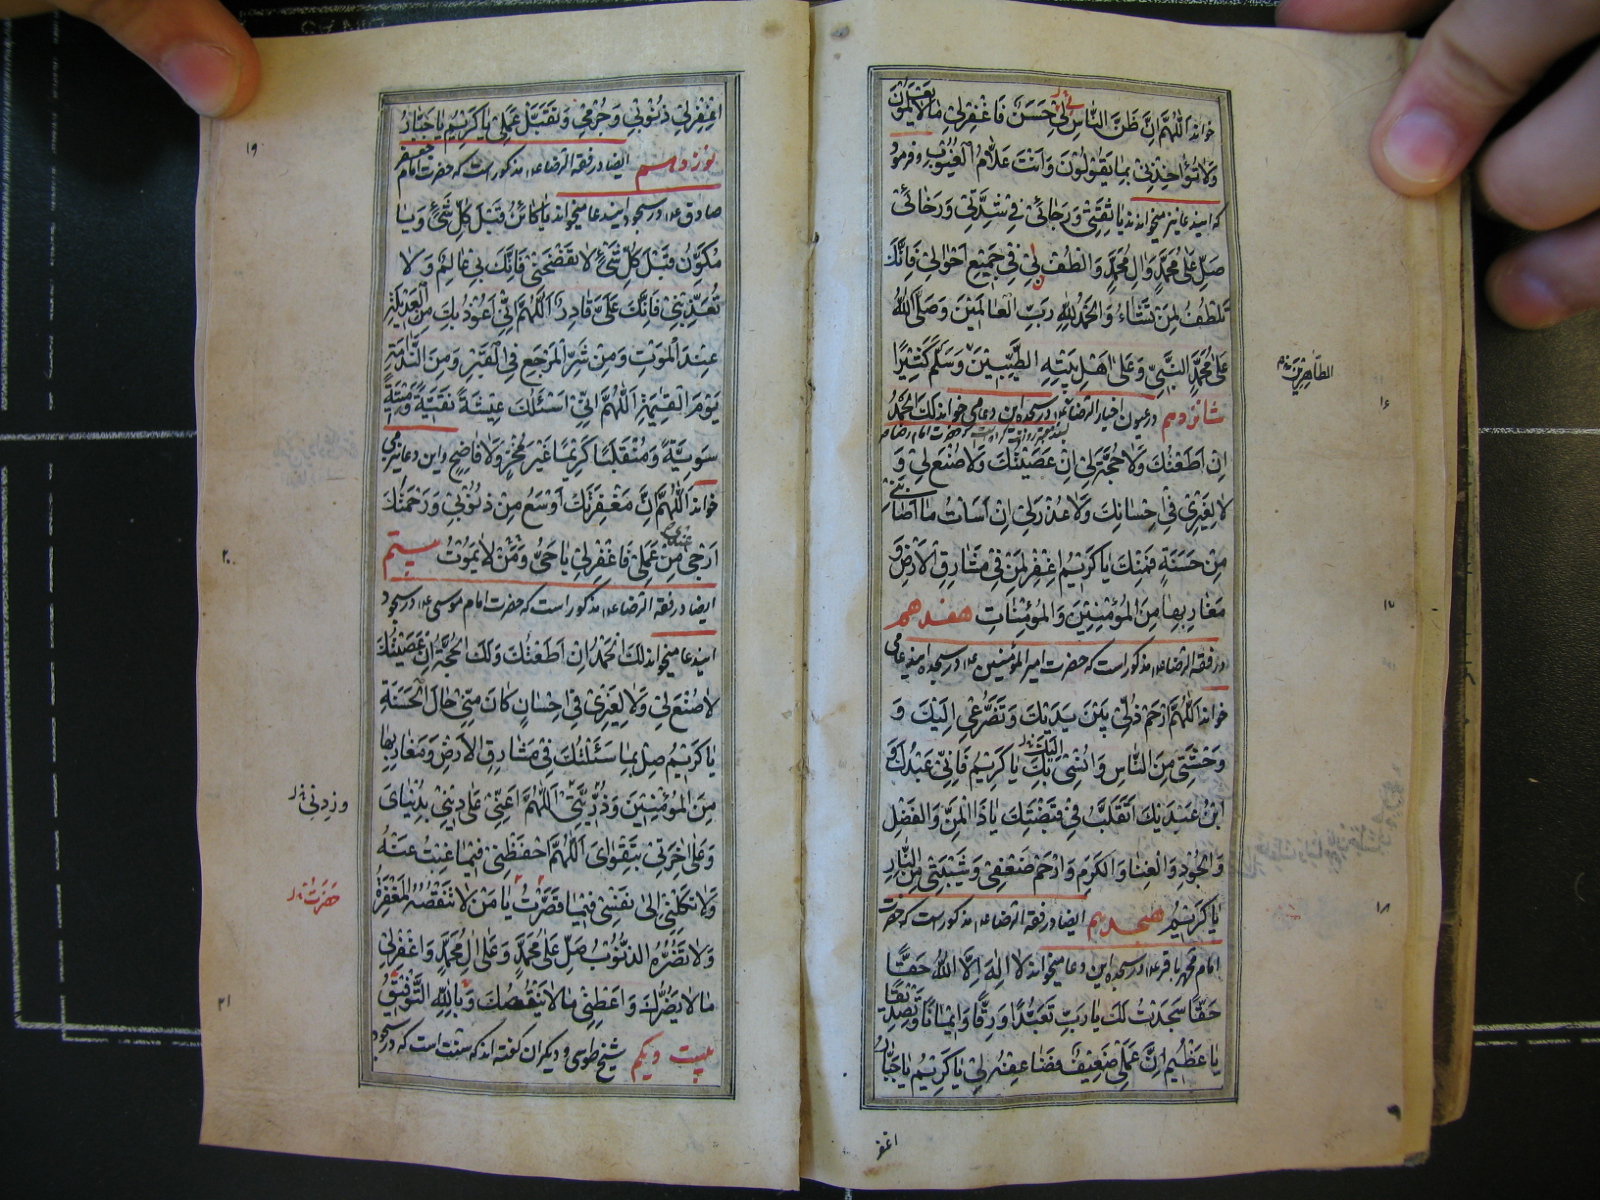 خواند اللهم ان ظن الناس بی حسن فاغفر لی ما لا یعلمون
ولا تؤاخذنی بما یقولون وانت علام الغیوب و فرمود
که این دعا نیز میخواندند یا ثقتی ورجائی فی شدتی ورخائی
صل علی محمد وال محمد والطف لی فی جمیع احوالی فانک
تلطف لمن تشاء والحمد لله رب العالمین وصلی الله
علی محمد النبی وعلی اهل بیته الطیبین وسلم کثیرا
الطاهرین
۱۶
شانزدهم در عیون اخبار الرضا در سجده این دعا می خواند لک الحمد
ان اطعتک ولا حجة لی ان عصیتک ولا صنع لی و
لا لغیری فی احسانک ولا عذر لی ان اسات ما اصابنی
من حسنة فمنک یا کریم اغفر لمن فی مشارق الارض و
مغاربها من المؤمنین والمؤمنات هفدهم
۱۷
در فقه الرضا مذکور است که حضرت امیر المؤمنین در سجده این دعا می
خواند اللهم ارحم ذلی بین یدیک وتضرعی الیک و
وحشتی من الناس وانسی بک الیک یا کریم فانی عبدک و
ابن عبدیک اتقلب فی قبضتک یا ذا المن والفضل
والجود والغنا والکرم وارحم ضعفی وشیبتی من النار
یا کریم هیجدهم ایضا در فقه الرضا مذکور است که حضرت
۱۸
امام محمد باقر در سجده این دعا میخواند لا اله الا الله حقا
حقا سجدت لک یا رب تعبدا ورقا وایمانا وتصدیقا
یا عظیم ان عملی ضعیف فضاعفه لی یا کریم یا جبار
اغفر
اغفر لی ذنوبی وجرمی وتقبل عملی یا کریم یا جبار
۱۹
نوزدهم ایضا در فقه الرضا مذکور است که حضرت امام جعفر
صادق در سجود این دعا میخواند یا کائن قبل کل شیء ویا
مکون قبل کل شیء لا تفضحنی فانک بی عالم ولا
تعذبنی فانک علی قادر اللهم انی اعوذ بک من العدیلة
عند الموت ومن شر المرجع فی القبر ومن الندامة
یوم القیمة اللهم انی اسئلک عیشة نقیة ومیتة
سویة ومنقلبا کریما غیر مخز ولا فاضح واین دعا نیز می
خواند اللهم ان مغفرتک اوسع من ذنوبی ورحمتک
ارجی عندی من عملی فاغفر لی یا حی ومن لا یموت بیستم
۲۰
ایضا در فقه الرضا مذکور است که حضرت امام موسی در سجود
این دعا میخواند لک الحمد ان اطعتک ولک الحجة ان عصیتک
لا صنع لی ولا لغیری فی احسان کان منی حال الحسنة
یا کریم صل بما سئلتک فی مشارق الارض ومغاربها
من المؤمنین وذریتی اللهم اعنی علی دینی بدنیای
وعلی اخرتی بتقوای اللهم احفظنی فیما غبت عنه
ولا تکلنی الی نفسی فیما قصرت یا من لا تنقصه المغفرة
حضرت
ولا تضره الذنوب صل علی محمد وعلی ال محمد واغفر لی
ما لا یضرک واعطنی ما لا ینقصک وبالله التوفیق
۲۱
بیست ویکم شیخ طوسی و دیگران گفته اند که سنت است که در سجود